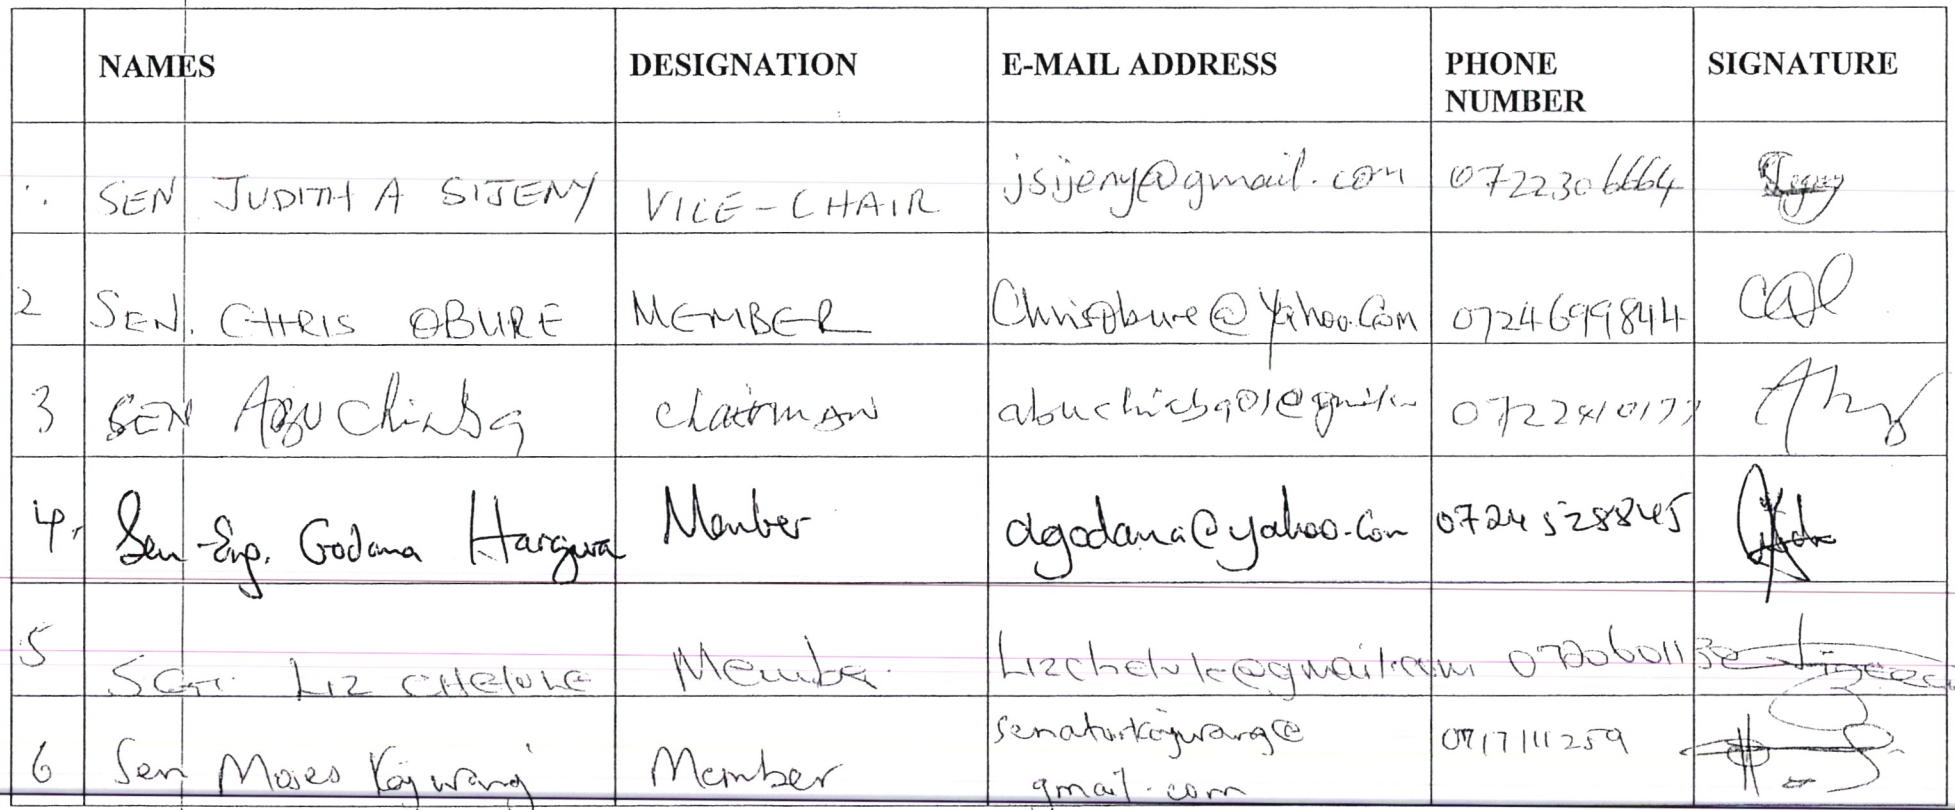 NAMES DESIGNATION E-MAIL ADDRESS PHONE NUMBER SIGNATURE
. SEN JUDITH A SIJENY VICE-CHAIR jsijeny@gmail.com 0722306664
2 SEN. CHRIS OBURE MEMBER Chrisobure@Yahoo.Com 0724699844
3 SEN ABU Chiaba chairman
4. Sen Eng. Godana Hargura Member dgodana@yahoo.com 0724528845
5 Liz CHELULE Member Lizchelule@gmail.com
6 Sen Moses Kajwang Member senatorkajwang@ 0717111259
gmail.com